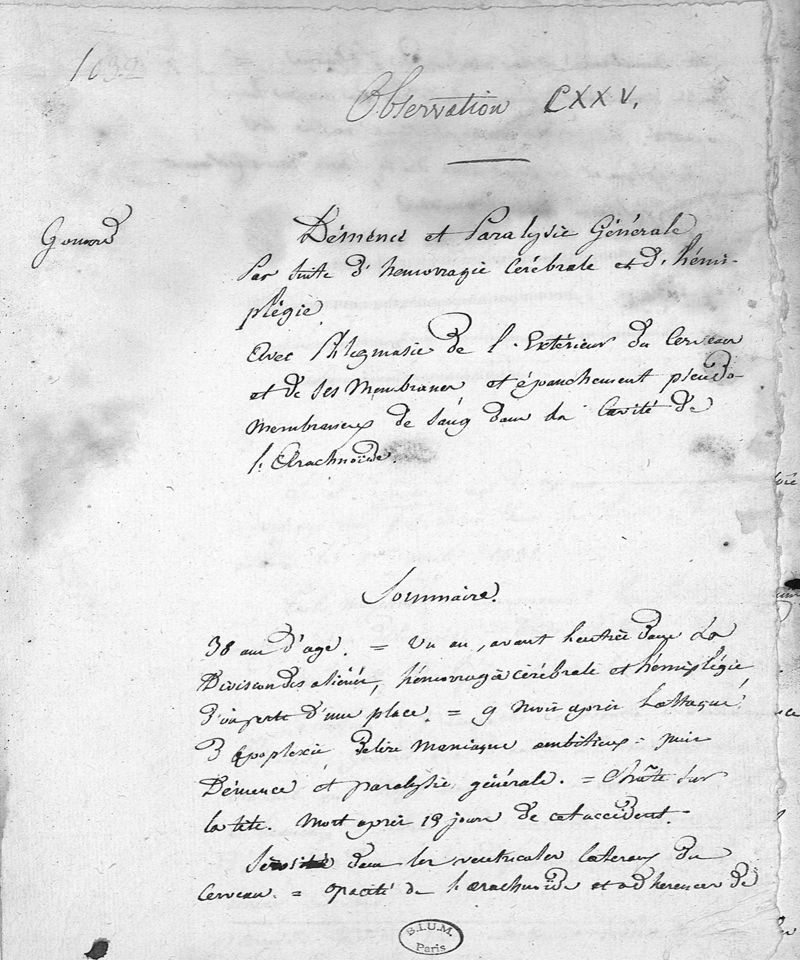 1032
Observation CXXV.
Gomord
Démence et Paralysie Générale
Par suite d'hemorragie Cérébrale et d'hémi-
plégie
Avec Phlegmasie de l'Extérieur du Cerveau
et de ses Membranes et épanchement pseudo-
membraneux de sang dans la Cavité de
l'Arachnoïde.
Sommaire.
38 ans d'age. = Un an, avant l'entrée dans La
Division des aliénés, hémorragie cérébrale et hémiplégie
d'une place. = 9 Mois après L'attaque
d'Apoplexie Delire Maniaque ambitieux = puis
Démence et paralysie générale. = Chûte sur
la tete. Mort après 19 jours de cet accident.
Sérosité dans les ventricules lateraux du
Cerveau. = opacité de l'arachnoïde et adherences de
S.I.U.M.
Paris